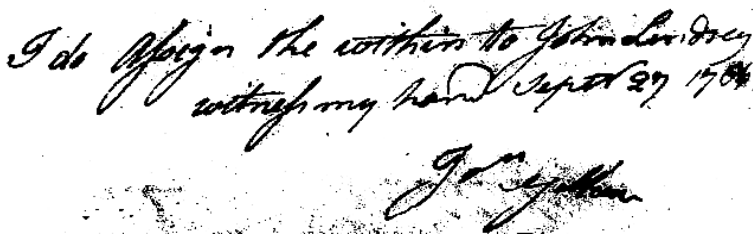 I do Assign the within to John Lindsey
witness my hand Septr 27 1786
Jno